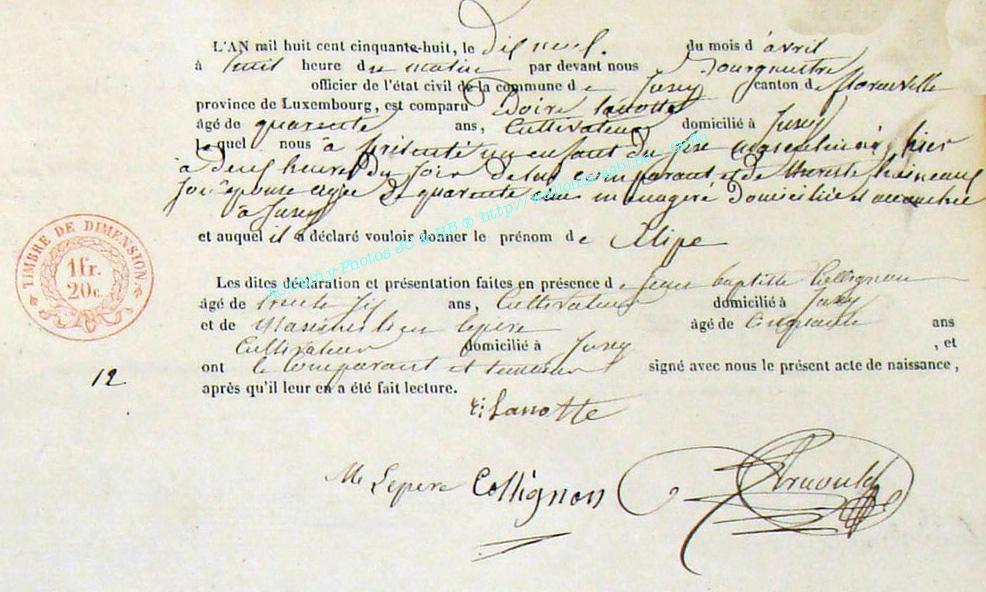 L'AN mil huit cent cinquante-huit, le dix neuf du mois d'avril
à huit heure du matin par devant nous Bourgmestre
officier de l'état civil de la commune de Jusey canton de florenville
province de Luxembourg, est comparu lanotte
âgé de quarente ans, Cultivateur domicilié à Jusey
lequel nous a présenté un enfant du sexe masculin né hier
à deux heures du soir de lui comparant et de
son épouse agée de quarente ans menagère domiciliée
à Jusey
et auquel il a déclaré vouloir donner le prénom de
Les dites déclaration et présentation faites en présence de jean baptiste Collignon
âgé de trente six ans, Cultivateur domicilié à Jusey
et de Maximilien lepere âgé de cinquante ans
Cultivateur domicilié à Jusey , et
ont le Comparant et temoins signé avec nous le présent acte de naissance,
après qu'il leur en a été fait lecture.
TIMBRE DE DIMENSION
1 fr.
20 c.
12
Lanotte
M Lepere Collignon